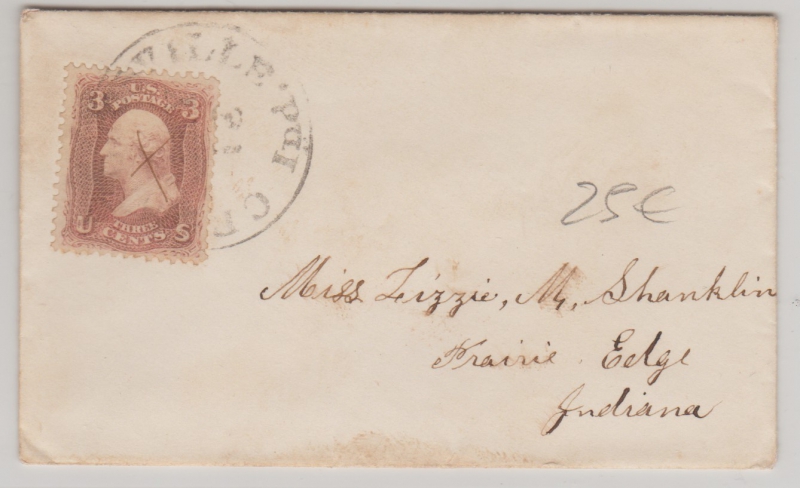 VILLE
IND.
3 U.S. 3
POSTAGE
U THREE S
CENTS
25€
Miss Lizzie, M, Shanklin
Prairie Edge
Indiana